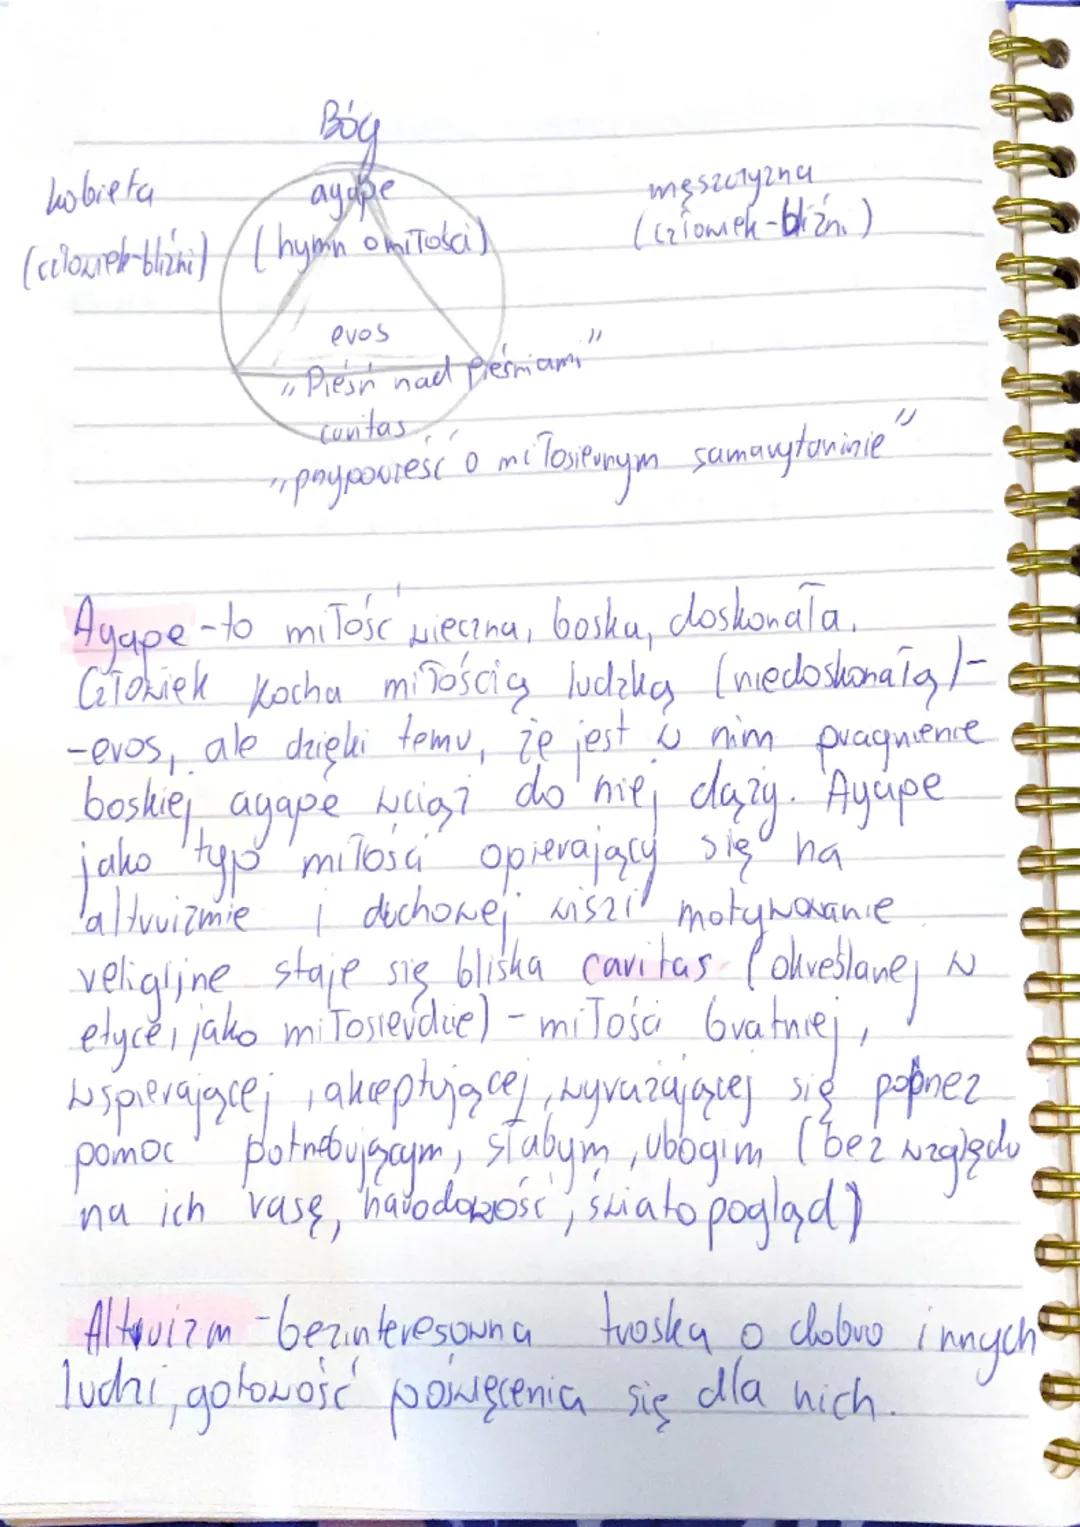 Bóg
kobieta agape męszczyzna
(człowiek-bliźni) (hymn o miłości) (człowiek-bliźn.)
eros
"Pieśń nad Pieśniami"
caritas
"przypowieść o miłosiernym samarytaninie"
Agape - to miłość wieczna, boska, doskonała.
Człowiek kocha miłością ludzką (niedoskonałą) -
- eros, ale dzięki temu, że jest w nim pragnienie
boskiej agape wciąż do niej dąży. Agape
jako typ miłości opierający się na
altruizmie i duchowej więzi motywowanie
religijne staje się bliska caritas (określanej w
etyce, jako miłosierdzie) - miłości bratniej,
wspierającej, akceptującej, wyrażającej się poprzez
pomoc potrzebującym, słabym, ubogim (bez względu
na ich rasę, narodowość, światopogląd)
Altruizm - bezinteresowna troska o dobro innych
ludzi, gotowość poświęcenia się dla nich.